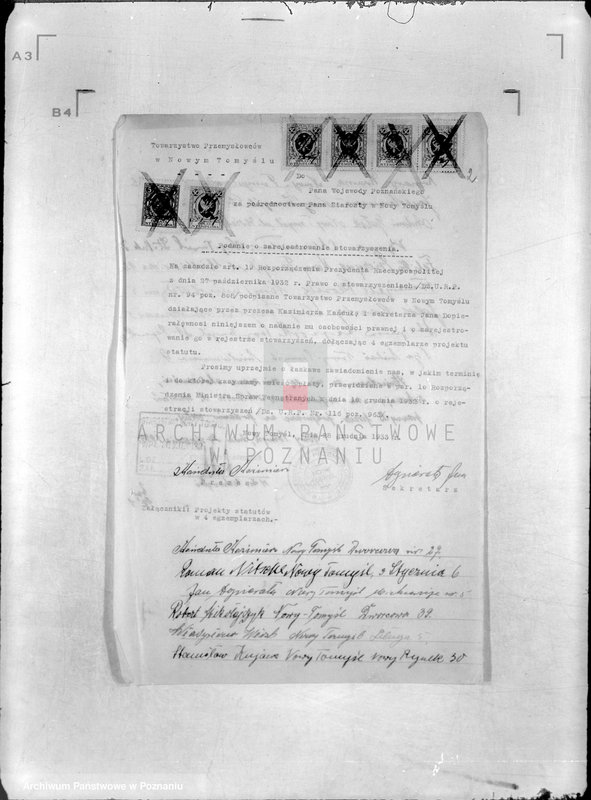 A3
B4
Towarzystwo Przemysłowców
w Nowym Tomyślu
2
Do
Pana Wojewody Poznańskiego
za pośrednictwem Pana Starosty w Nowym Tomyślu
Podanie o zarejestrowanie stowarzyszenia.
Na zasadzie art. 19 Rozporządzenia Prezydenta Rzeczypospolitej
z dnia 27 października 1932 r. Prawo o stowarzyszeniach /Dz.U.R.P.
nr. 94 poz. 808/podpisane Towarzystwo Przemysłowców w Nowym Tomyślu
działające przez prezesa Kazimierza i sekretarza Jana
niniejszem o nadanie mu osobowości prawnej i o zarejestro-
wanie go w rejestrze stowarzyszeń, dołączając 4 egzemplarze projektu
statutu.
Prosimy uprzejmie o łaskawe zawiadomienie nas, w jakim terminie
i do której kasy mamy opłaty, przewidziane w par. 10 Rozporzą-
dzenia Ministra Spraw Wewnętrznych z dnia 10 grudnia 1932 r. o reje-
stracji stowarzyszeń /Dz. U.R.P. Nr. 116 poz. 963/.
Nowy Tomyśl, dnia grudnia 1933 r.
ARCHIWUM PAŃSTWOWE
W POZNANIU
Kazimierz
Jan
Prezes
Sekretarz
Załączniki: Projekty statutów
w 4 egzemplarzach.-
Kazimierz Nowy Tomyśl Dworcowa nr 27
Roman Nitschke Nowy Tomyśl, 3 Stycznia 6
Jan Nowy Tomyśl
Robert Mikołajczyk Nowy-Tomyśl Dworcowa 32.
Władysław Nowy Tomyśl
Stanisław Kujawa Nowy Tomyśl Nowy Rynek 30
Archiwum Państwowe w Poznaniu